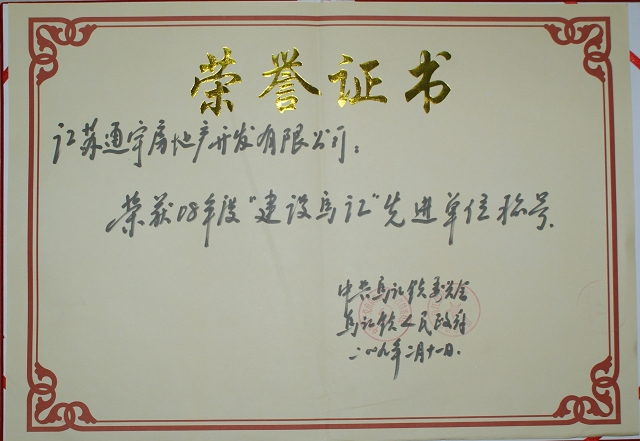 荣誉证书
江苏通宇房地产开发有限公司：
荣获08年度“建设乌江”先进单位称号.
中共乌江镇委员会
乌江镇人民政府
二00九年二月十一日.